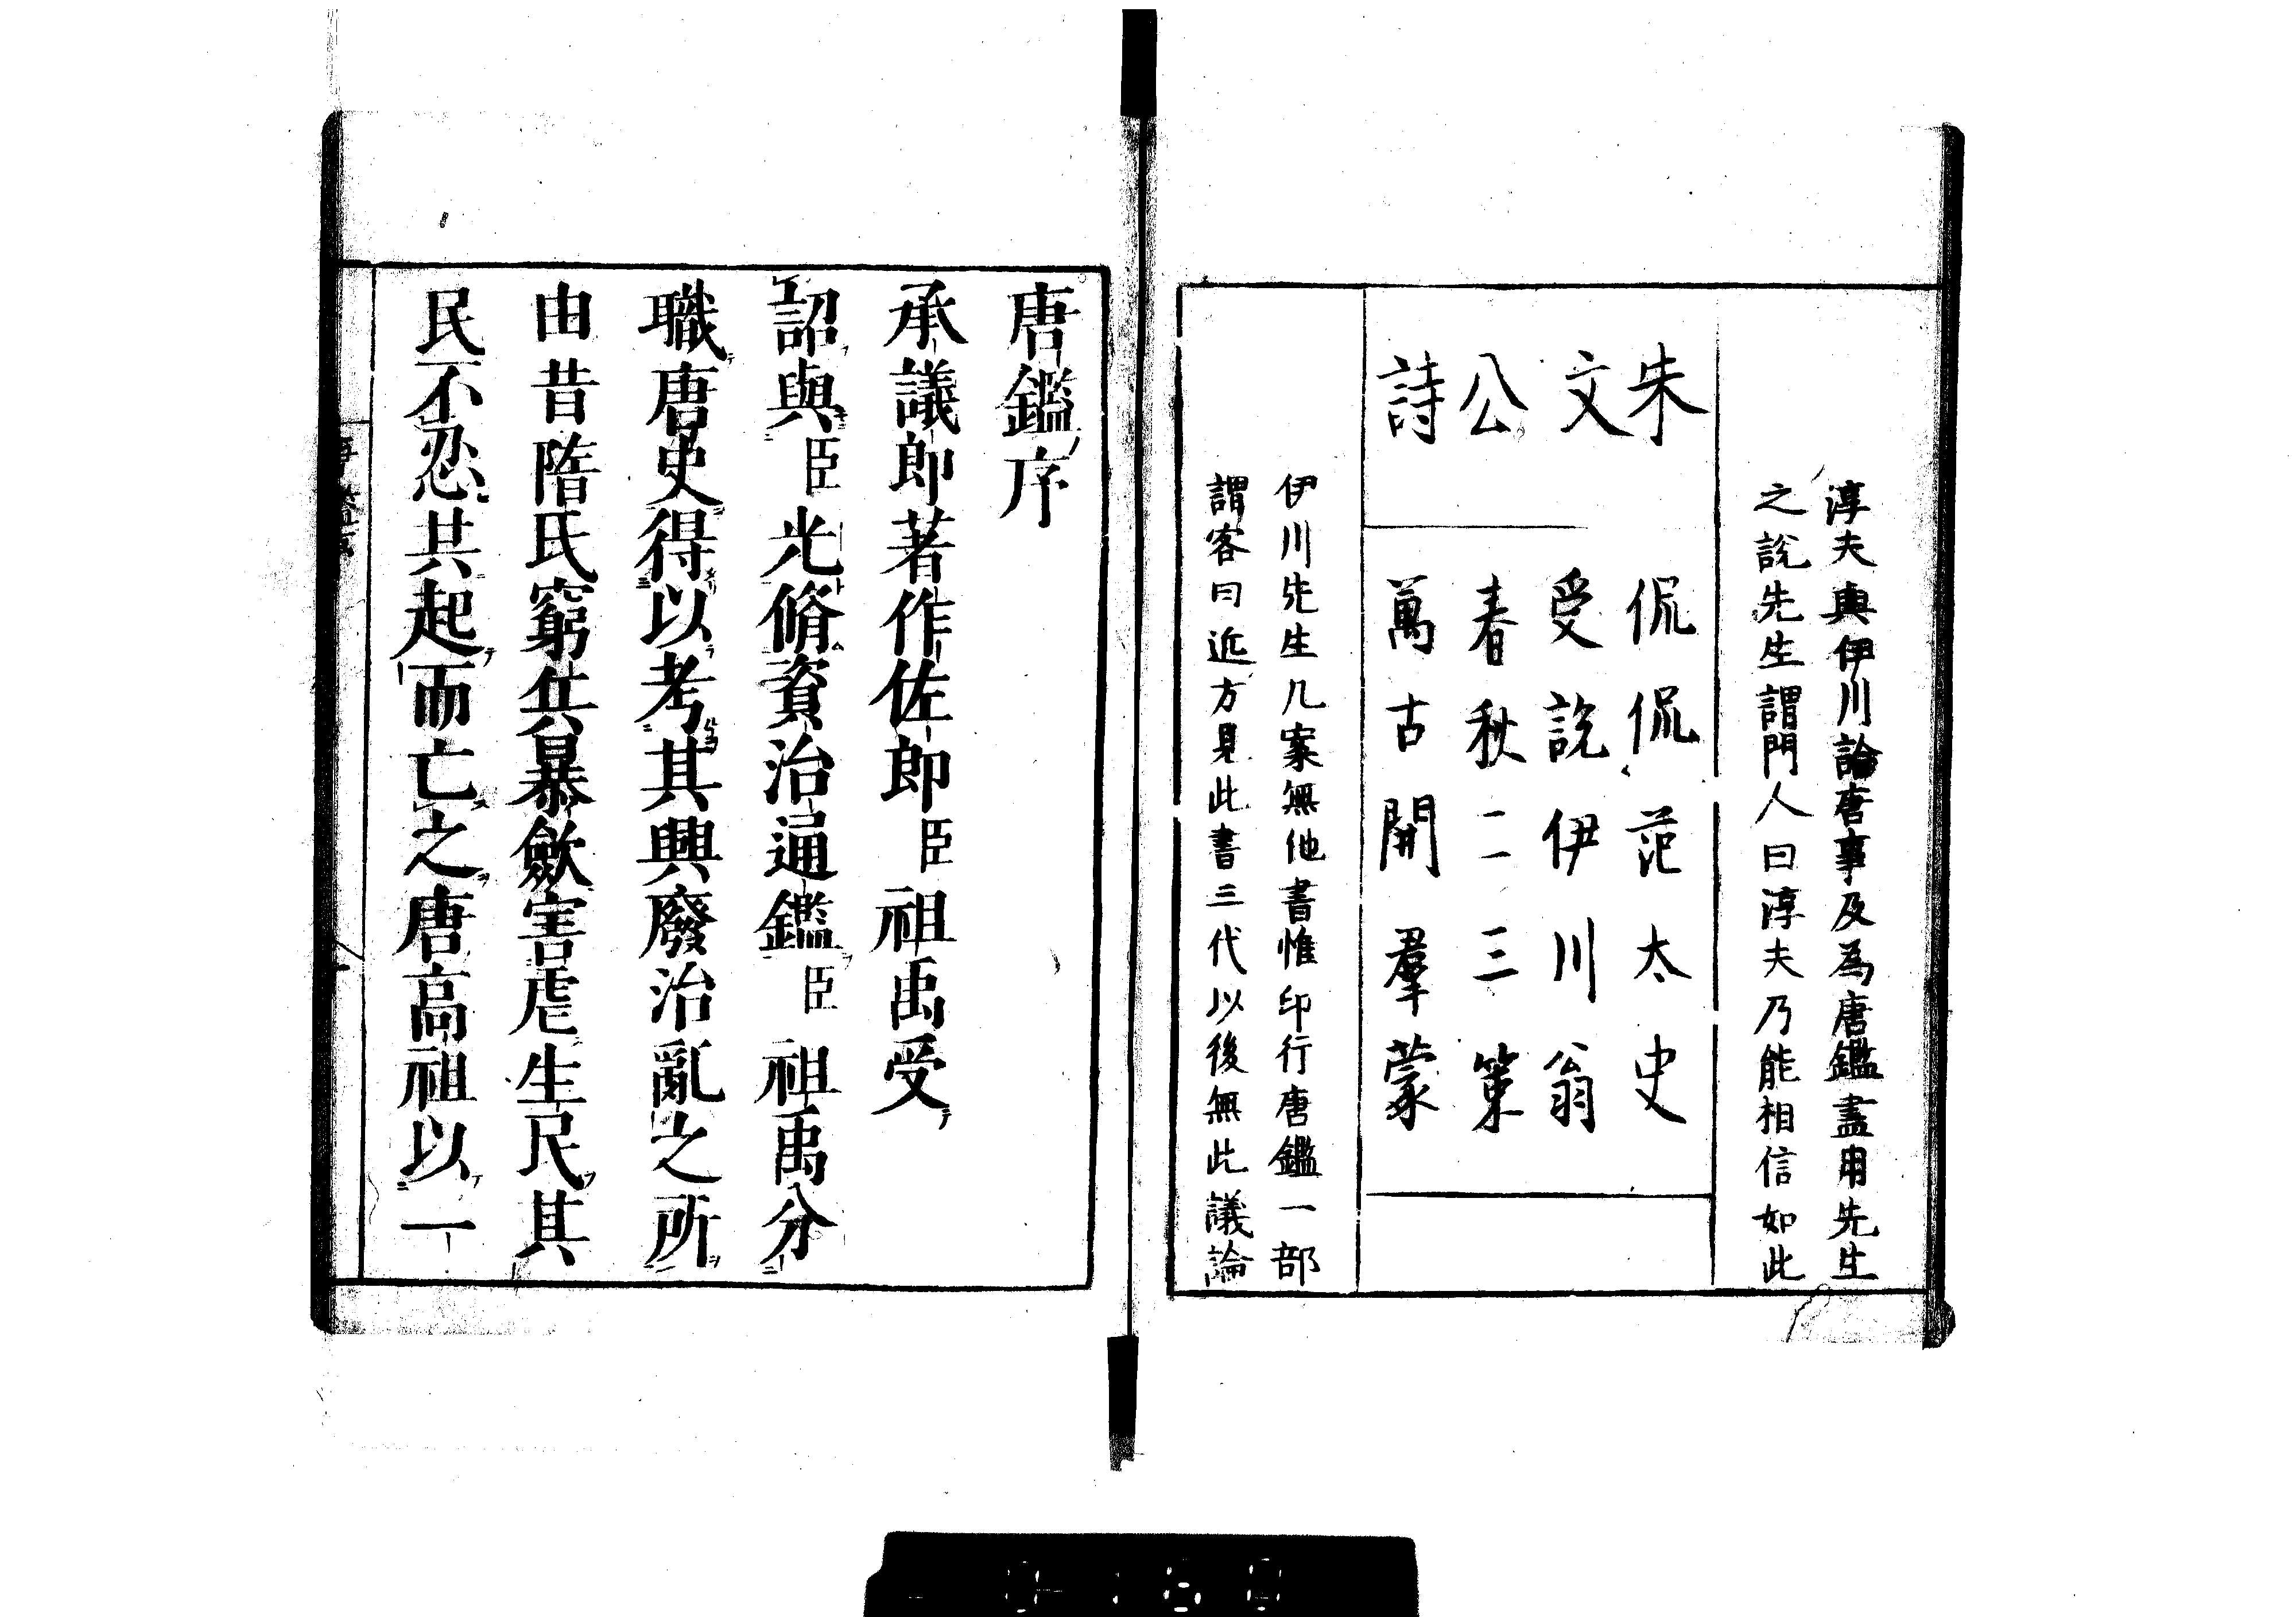 淳夫與伊川論唐事及為唐鑑盡用先生
之説先生謂門人曰淳夫乃能相信如此
朱文公詩
侃侃范太史
受説伊川翁
春秋二三策
萬古開羣蒙
伊川先生几案無他書惟印行唐鑑一部
謂客曰近方見此書三代以後無此議論
唐鑑序
承議郎著作佐郎臣祖禹受
詔與臣光脩資治通鑑臣祖禹分
職唐史得以考其興廢治亂之所
由昔隋氏窮兵暴斂害虐生民其
民不忍共起而亡之唐高祖以一